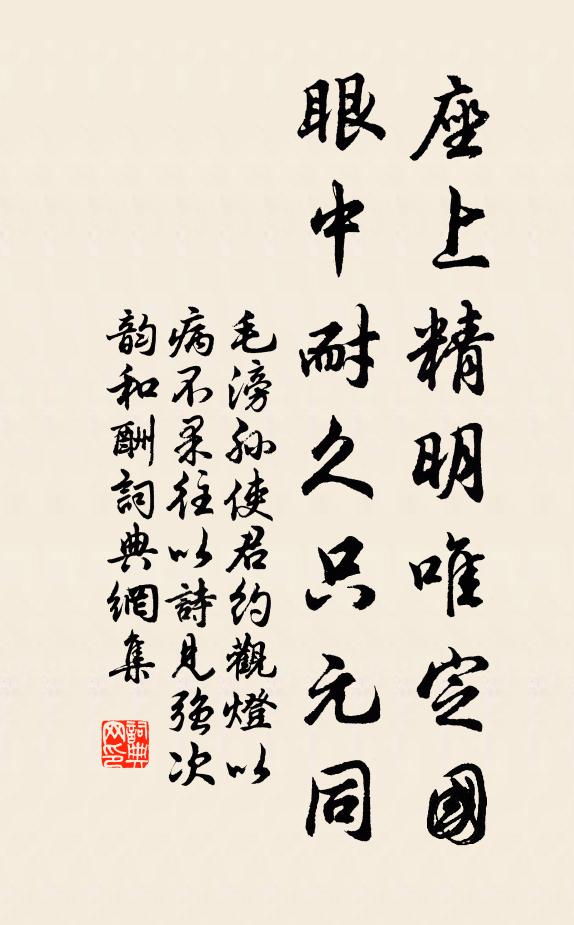 座上精明唯定國
眼中耐久只元同
毛滂孫使君約觀燈以
病不果往以詩見強次
韵和酬詞典網集
詞典网印